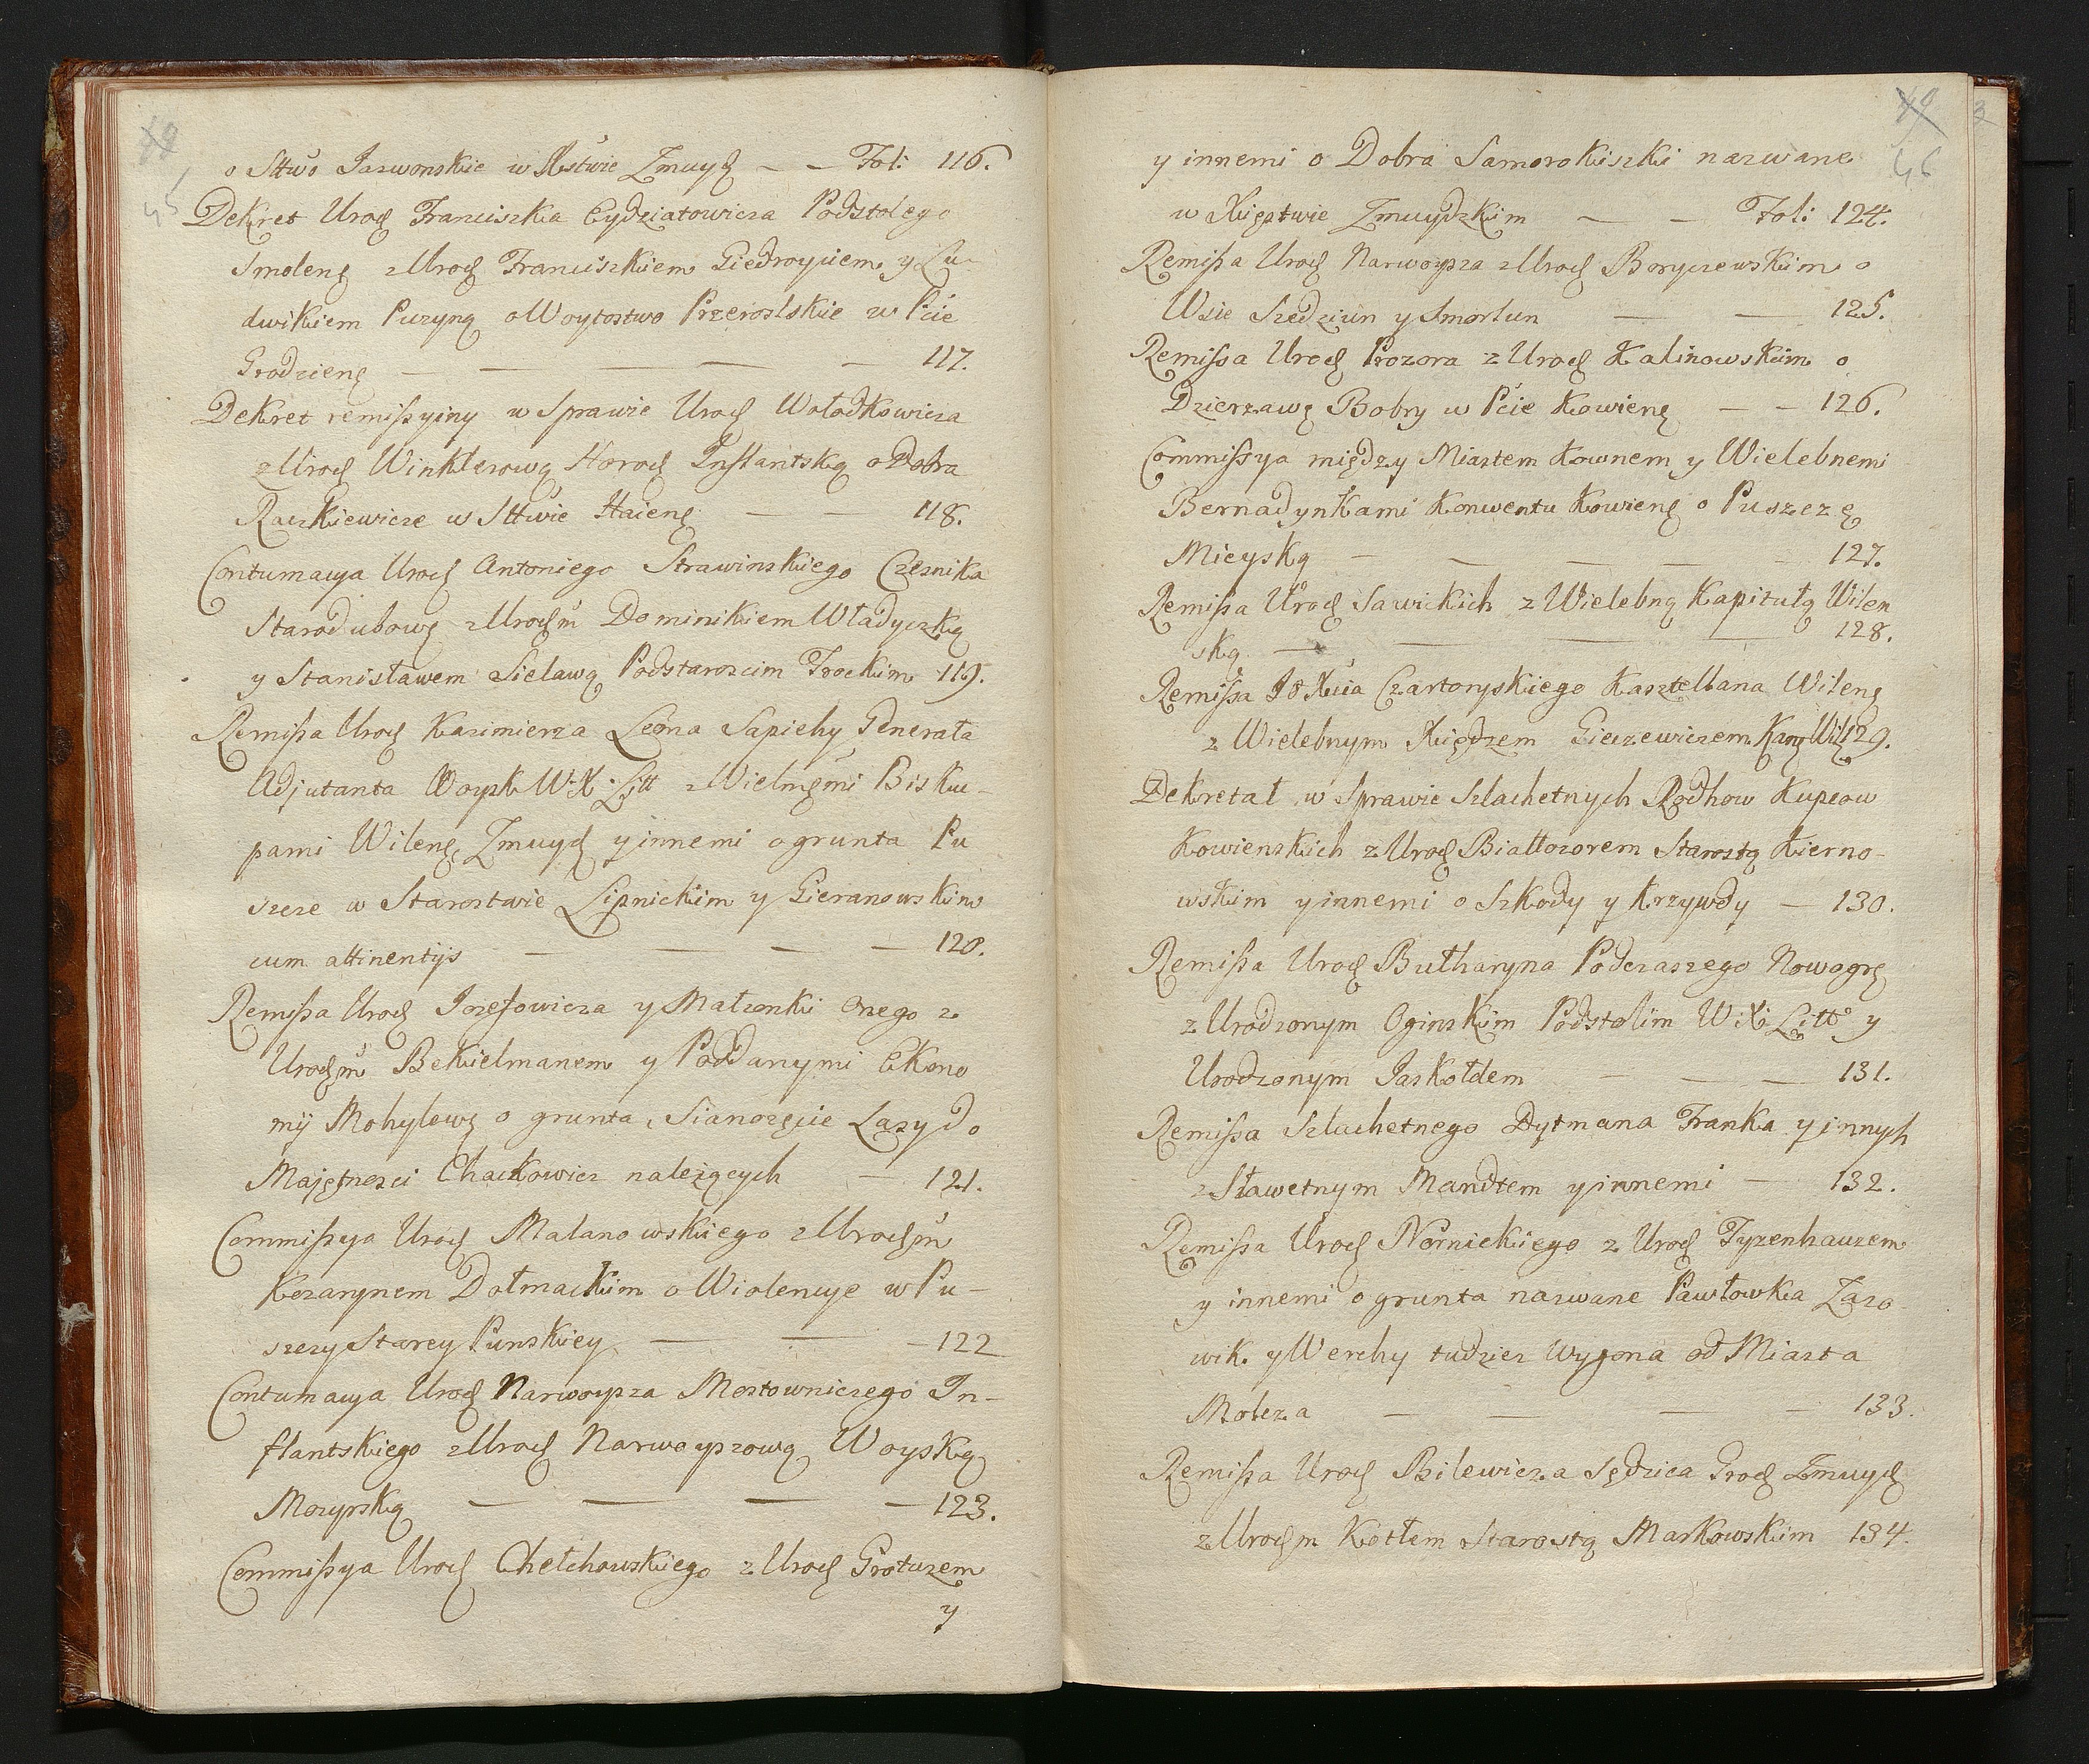 45
o Sttwo Jaswonskie w Xstwie Zmuyd — — Fol: 116.
Dekret Urod Franciszka Eydziatowicza Podstolego
Smolen z Urod Franciszkiem Giedroyciem y Lu-
dwikiem Puzyną o Woytostwo Przeroslskie w Pcie
Grodzien — — — — — 117.
Dekret remissyiny w Sprawie Urod Wołodkowicza
z Urod Winklerową Horod Inflantską o Dobra
Raczkiewicze w Sttwie Haien — — 118.
Contumacya Urod Antoniego Strawinskiego Czesnika
Starodubow z Urodm Dominikiem Władyczką
y Stanisławem Sielawą Podstaroscim Trockim 119.
Remissa Urod Kazimierza Leona Sapiehy Generała
Adjutanta Woysk W: X: Litt z Wielmemi Bisku-
pami Wilen, Zmuyd y innemi o grunta Pu
szcze w Starostwie Lipnickim y Gieranowskim
cum attinentijs — — — — 120.
Remissa Urod Jozefowicza y Małzonki Onego z
Urodm Bekielmanem y Poddanymi Ekono
mij Mohylow o grunta, Sianozęcie Lasy do
Majętnosci Chackowicz należących — 121.
Commissya Urod Malanowskiego z Urodm
Kczarynem Dołmackim o Wiolencye w Pu-
szczy Starey Punskiey — — — 122
Contumacya Urod Narwoysza Mostowniczego In-
flantskiego z Urod Narwoyszową Woyską
Mozyrską — — — — 123.
Commissya Urod Chełchowskiego z Urod Grotuzem
y
46
y innemi o Dobra Samorokiszki nazwane
w Xięstwie Zmuydzkim — — Fol: 124.
Remissa Urod Narwoysza z Urod Boryczewskim o
Wsie Szedziun y Smorlun — — 125.
Remissa Urod Prozora z Urod Kalinowskim o
Dzierzawę Bobry w Pcie Kowien — — 126.
Commissya między Miastem Kownem y Wielebnemi
Bernadynkami Konwentu Kowien o Puszczę
Mieyską — — — — — 127.
Remissa Urod Sawickich z Wielebną Kapitułą Wilen
ską — — — — 128.
Remissa Xcia Czartoryskiego Kasztellana Wilen
z Wielebnym Xiędzem Gieczewiczem Kan Wil 129.
Dekretał w Sprawie Szlachetnych Rodhow Kupcow
Kowienskich z Urod Białłozorem Starostą Kierno-
wskim y innemi o Szkody y Krzywdy — 130.
Remissa Urod Bułharyna Podczaszego Nowogr
z Urodzonym Oginskim Podstolim W: X: Litto y
Urodzonym Jaskołdem — — — 131.
Remissa Szlachetnego Dytmana Franka y innych
z Sławetnym Mandtem y innemi — 132.
Remissa Urod Nornickiego z Urod Tyzenhauzem
y innemi o grunta nazwane Pawłowka Zazo
wik. y Werchy tudziez Wygona od Miasta
Molcza — — — — 133.
Remissa Urod Bilewicza Sędzica Grod Zmuyd
z Urodm Kotłem Starostą Markowskim 134.